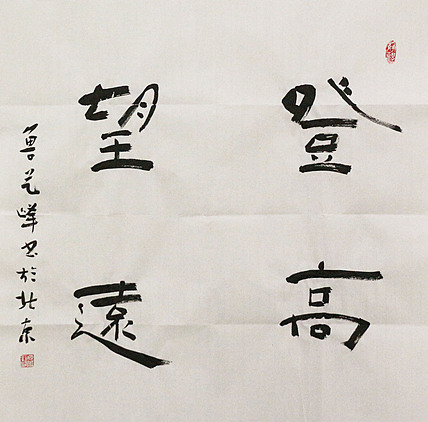 登高
望遠
魯光峰书於北京